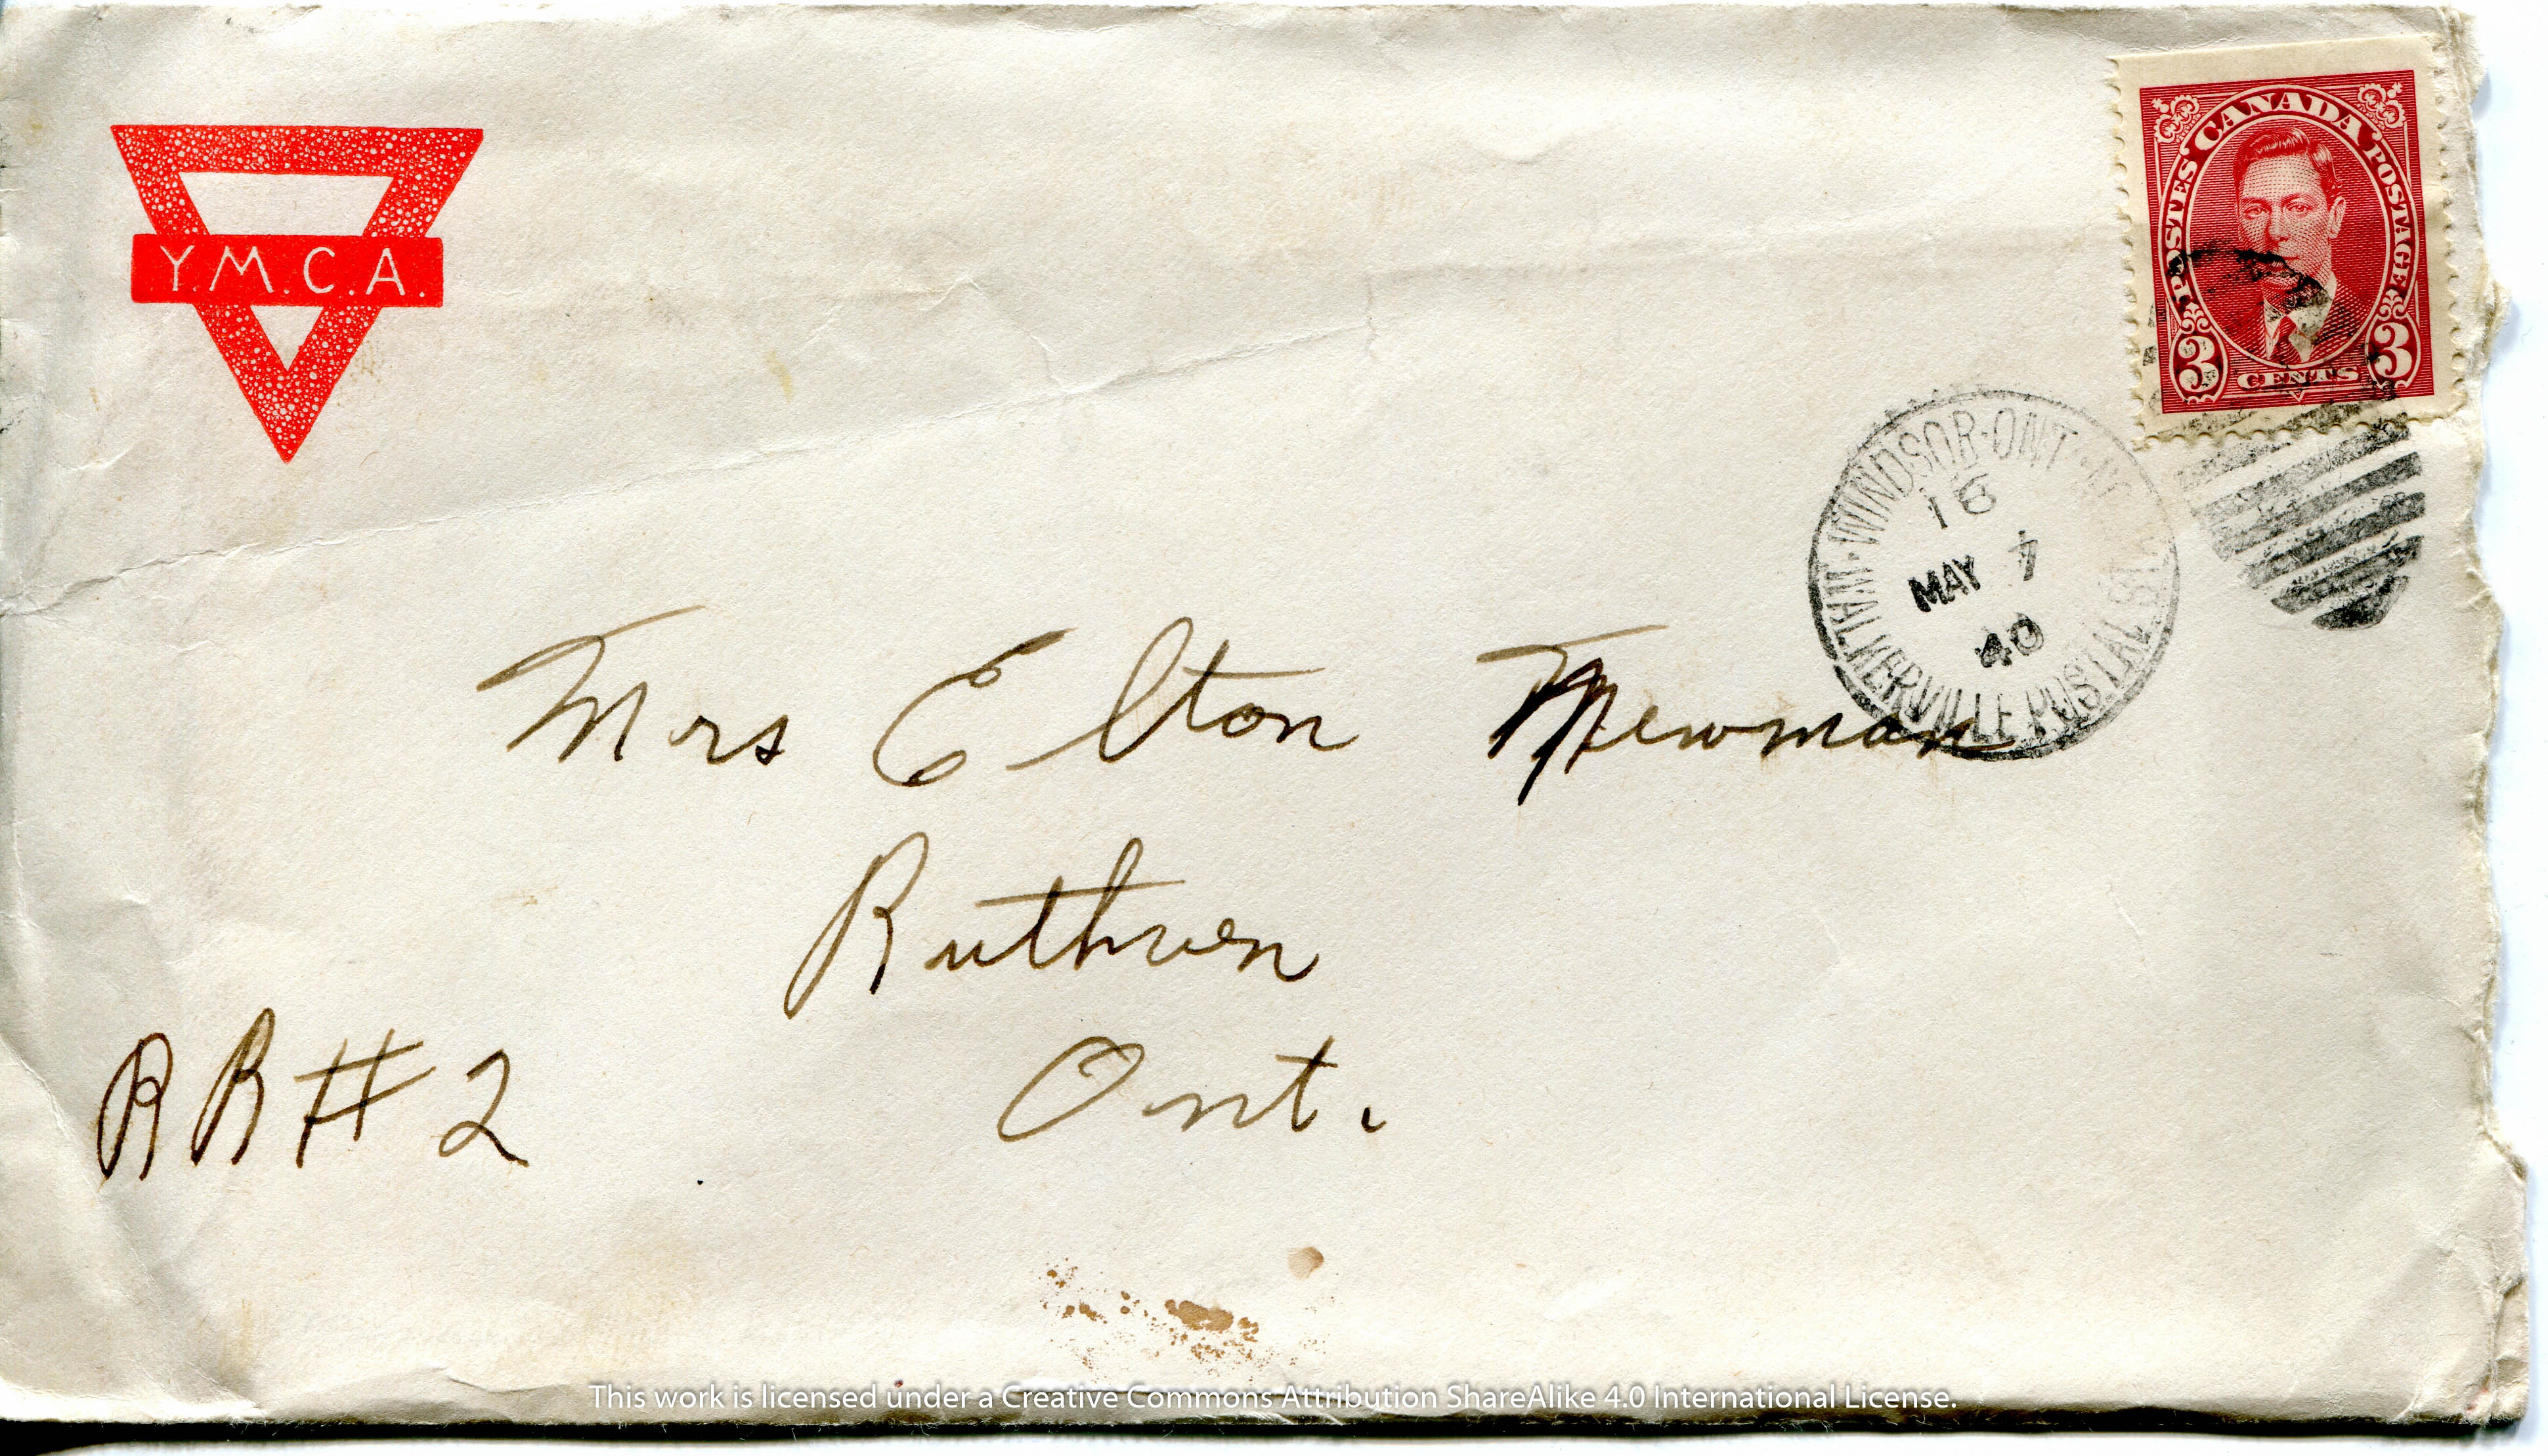 Y.M.C.A.
POSTES CANADA POSTAGE
3 CENTS 3
WINDSOR·ONT
WALKERVILLE POSTAL
16
MAY 7
40
Mrs Elton Newman
Ruthven
Ont.
RR#2
This work is licensed under a Creative Commons Attribution ShareAlike 4.0 International License.